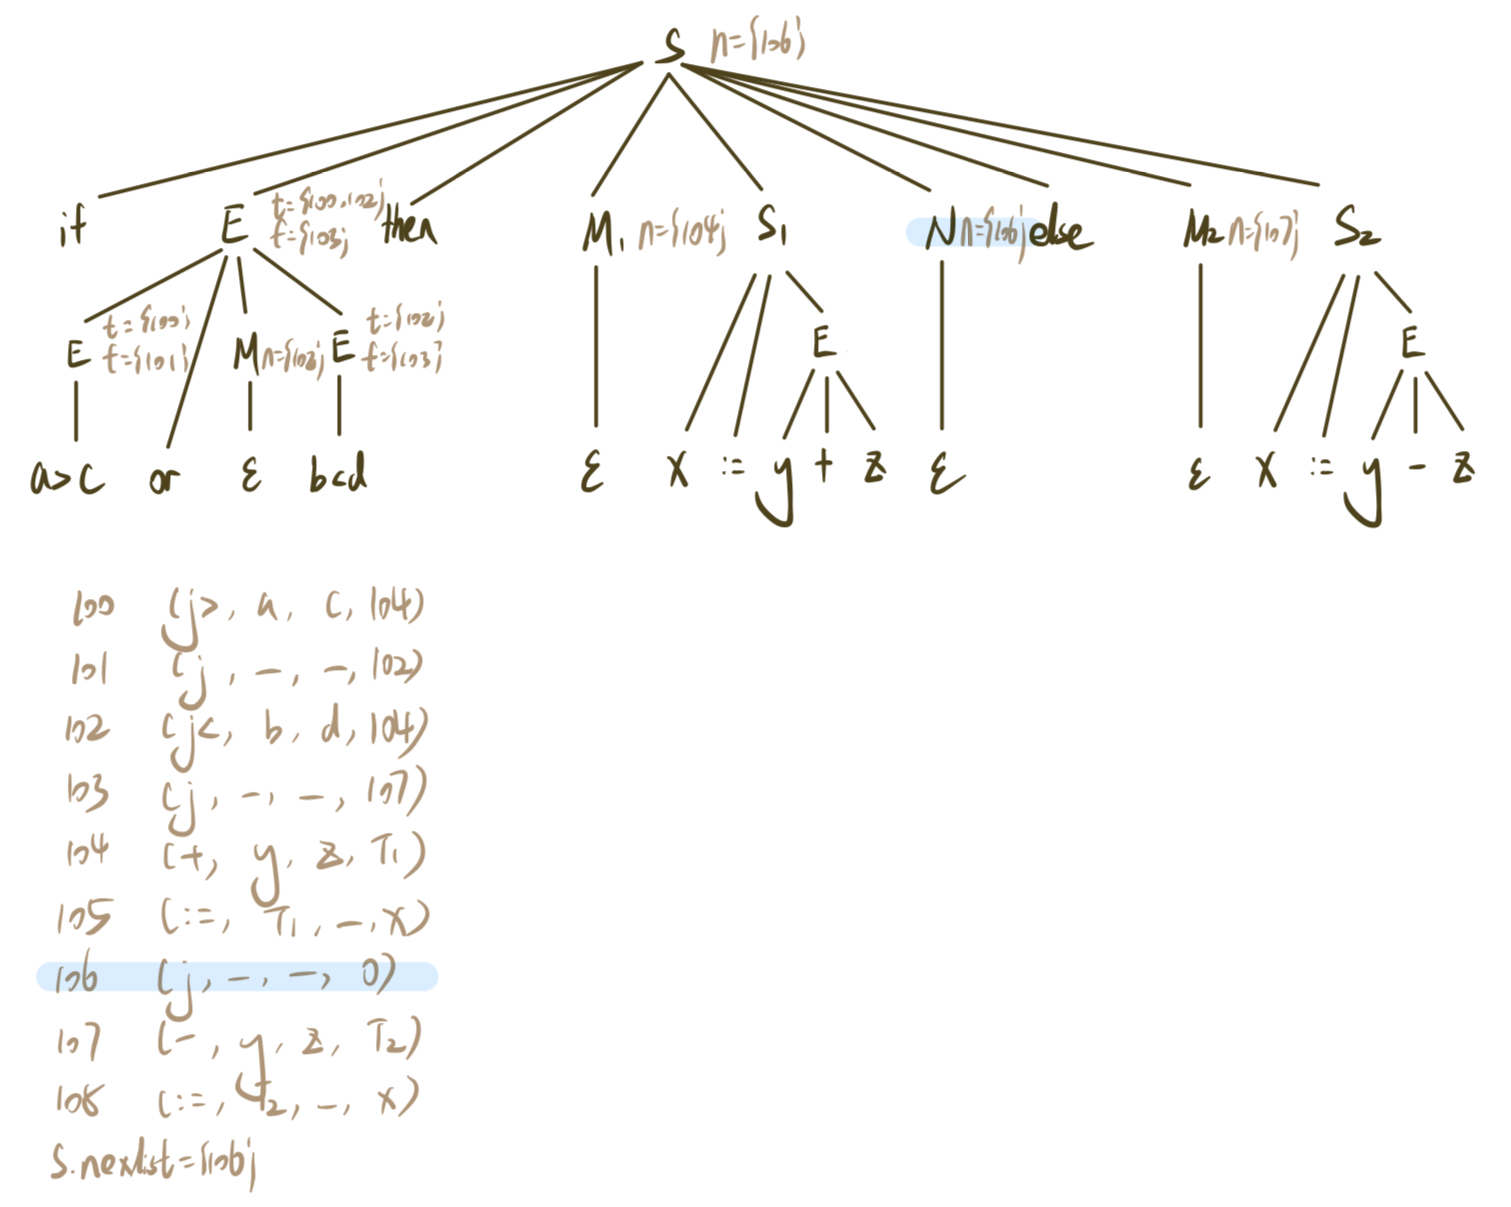 S n={106}
if E t={100,102} f={103} then M1 n={104} S1 N n={106} else M2 n={107} S2
E t={100} f={101} M n={102} E t={102} f={103} E E
a>c or ε b<d ε x := y + z ε ε x := y - z
100 (j>, a, c, 104)
101 (j, -, -, 102)
102 (j<, b, d, 104)
103 (j, -, -, 107)
104 (+, y, z, T1)
105 (:=, T1, -, x)
106 (j, -, -, 0)
107 (-, y, z, T2)
108 (:=, T2, -, x)
S.nextlist={106}